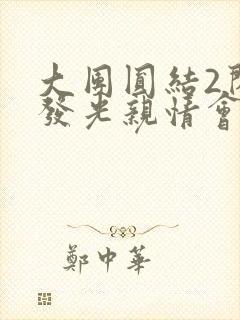 大團圓結2閃
發光親情會
鄭中華